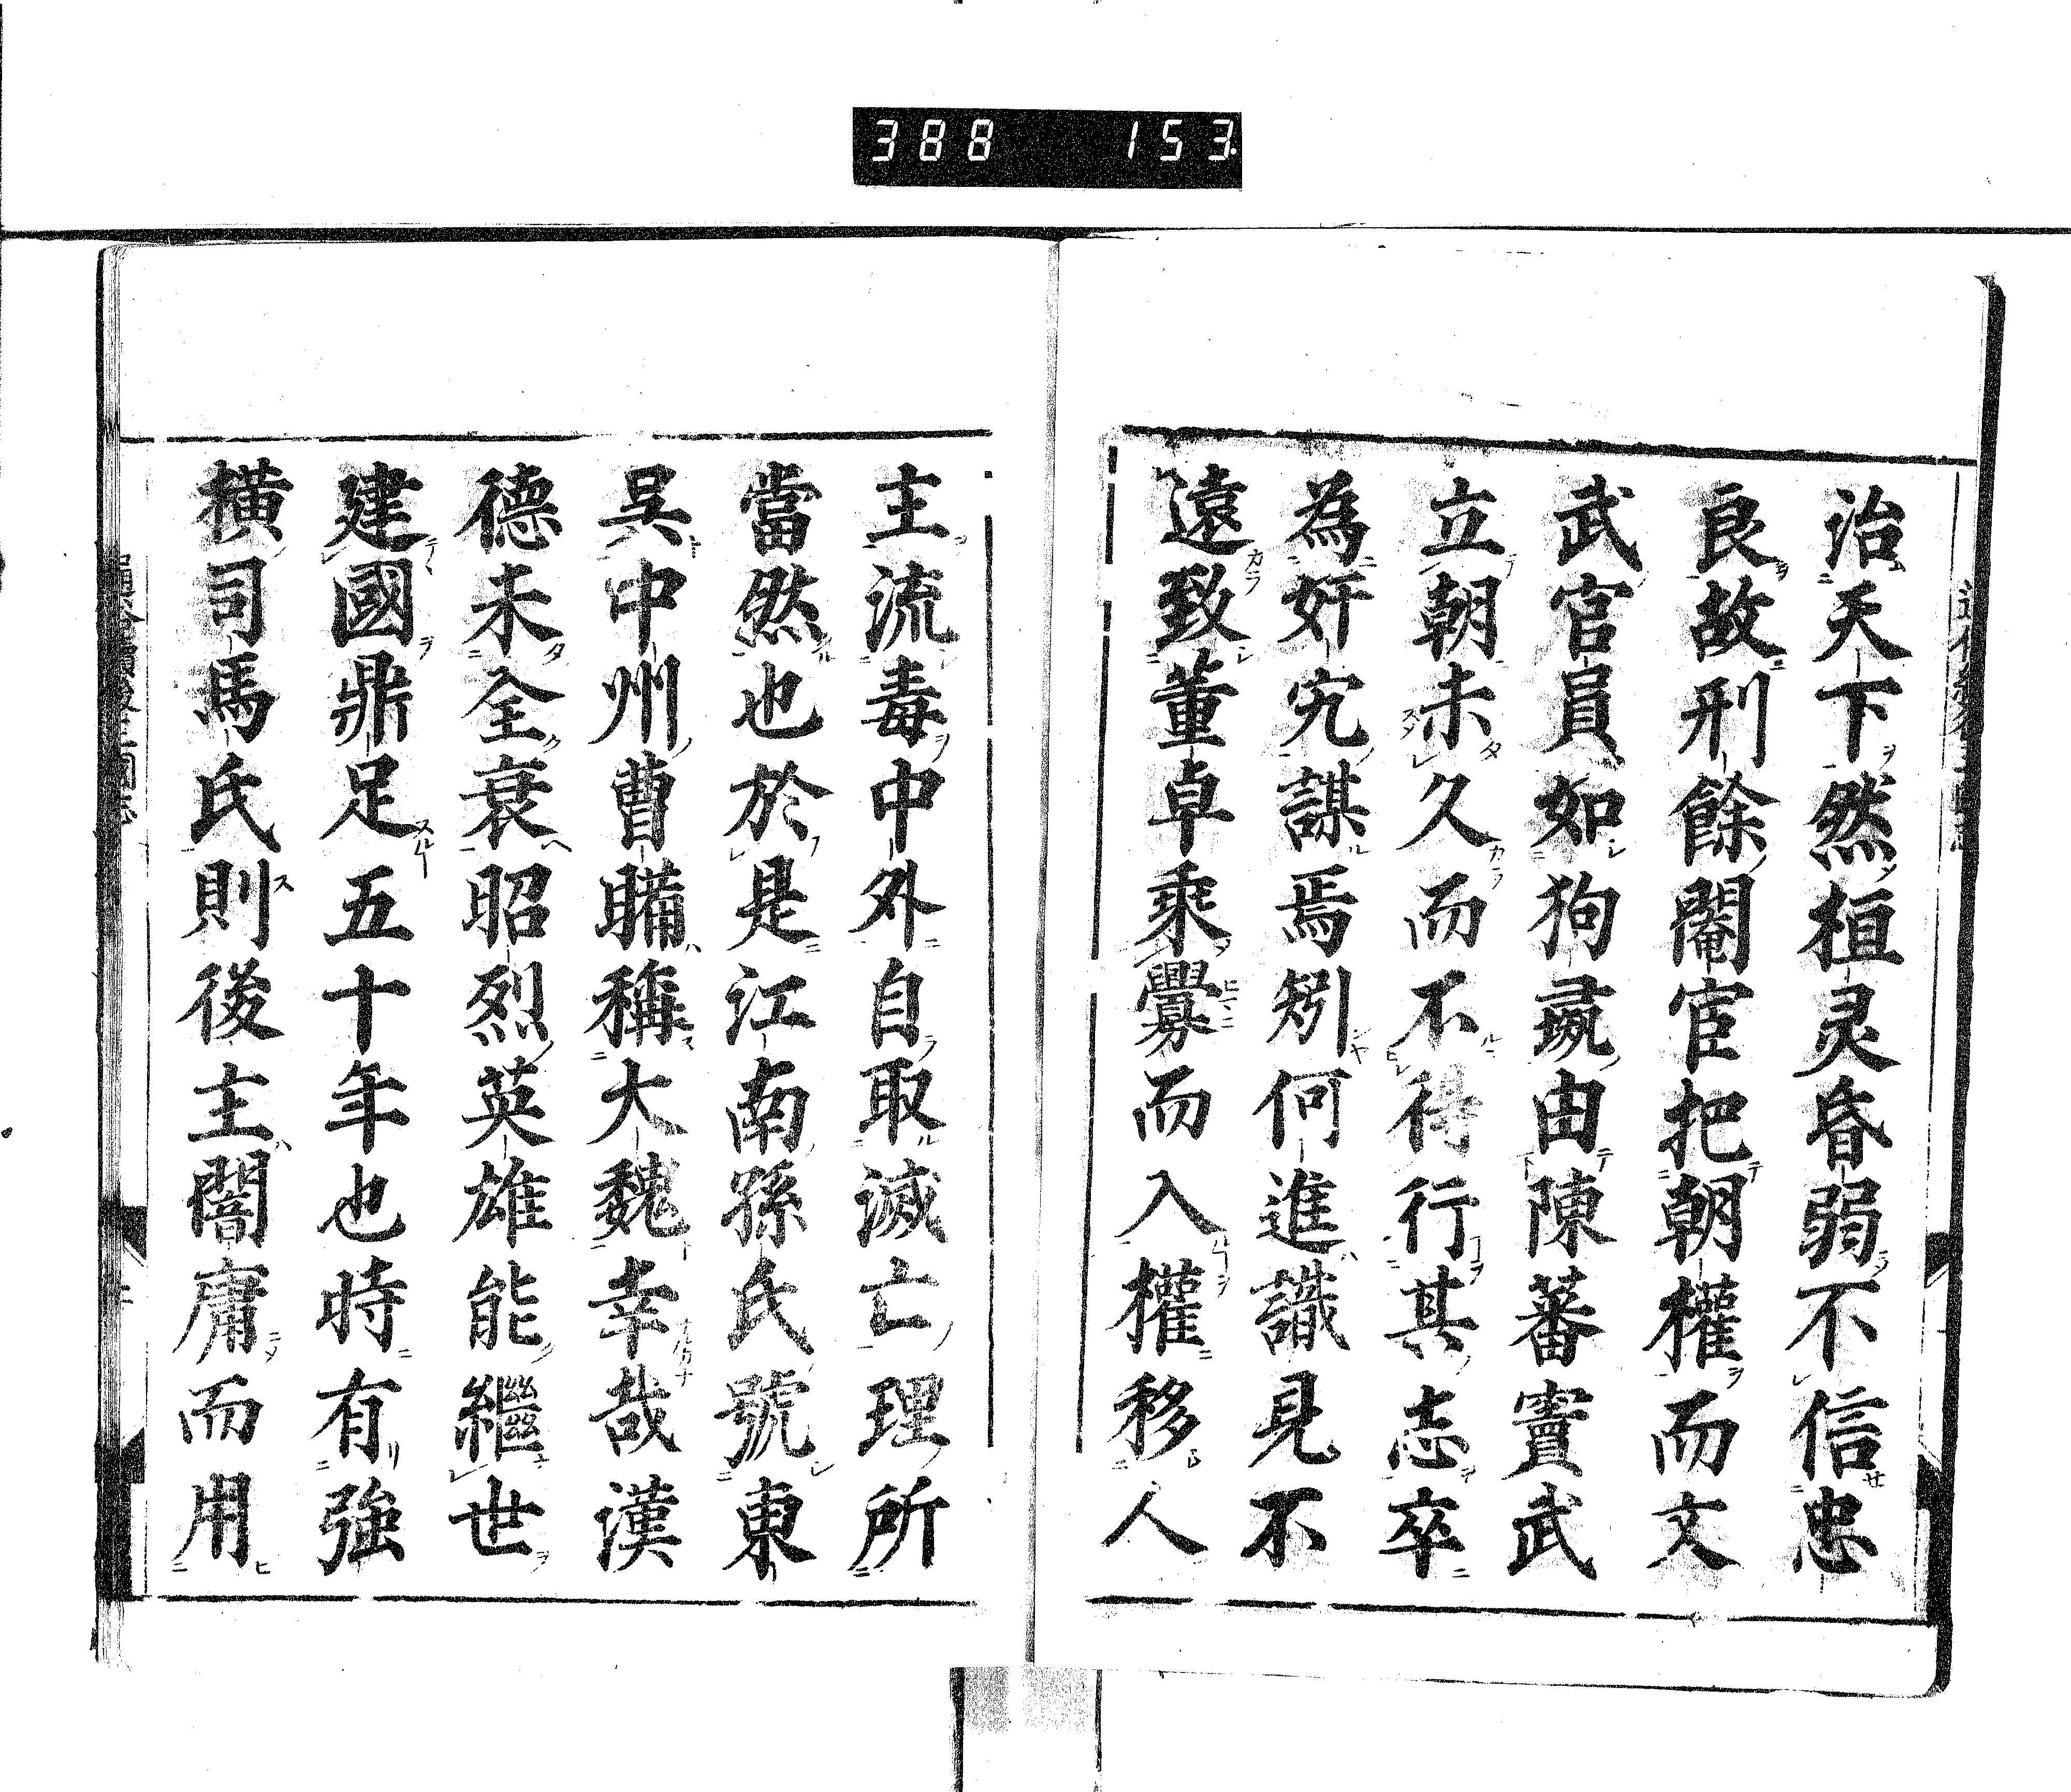 388 153
治天下然桓灵昏弱不信忠
良故刑餘閹宦把朝權而文
武官員如狗彘由陳蕃竇武
立朝未久而不得行其志卒
為奸宄謀焉矧何進識見不
遠致董卓乘釁而入權移人
主流毒中外自取滅亡理所
當然也於是江南孫氏號東
吳中州曹瞞稱大魏幸哉漢
德未全衰昭烈英雄能繼世
建國鼎足五十年也時有強
橫司馬氏則後主闇庸而用